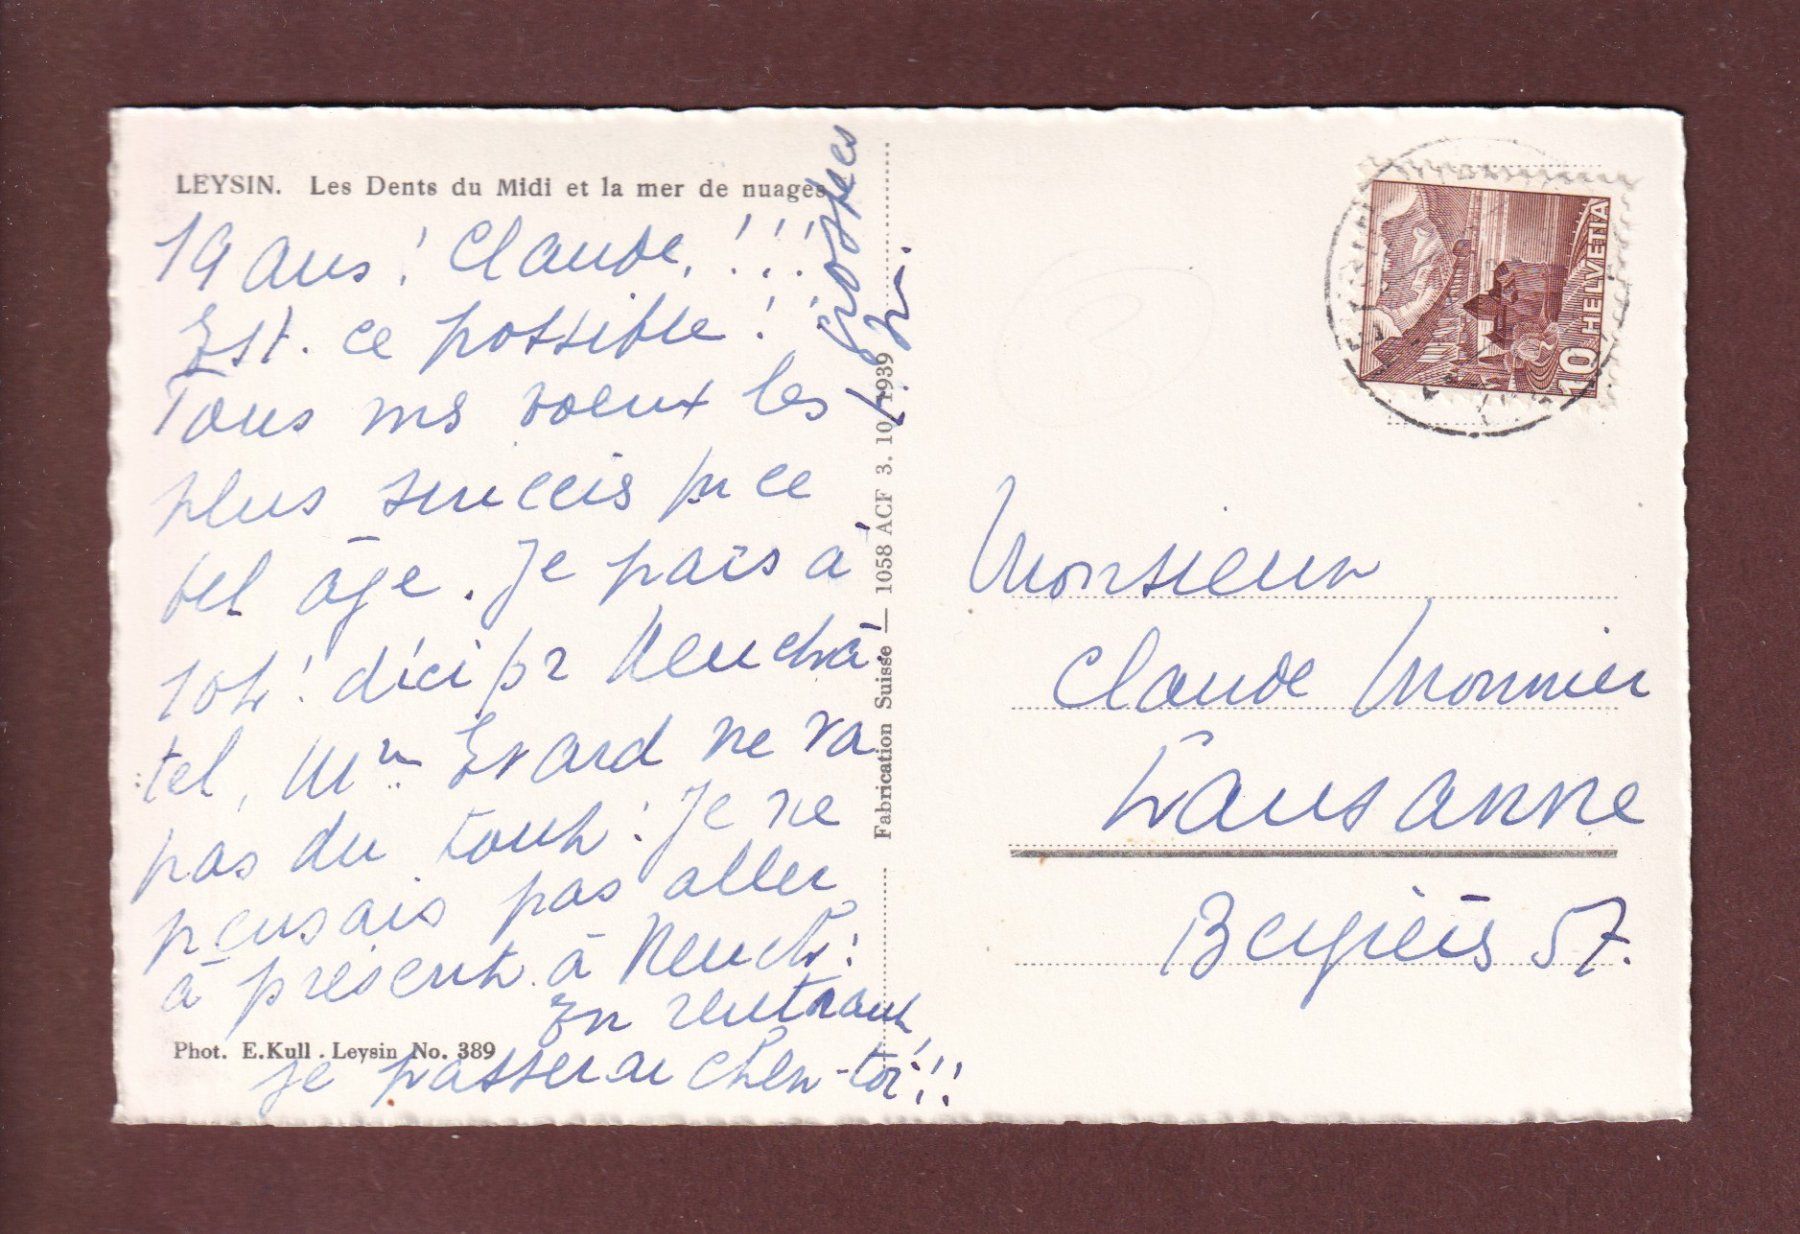 LEYSIN. Les Dents du Midi et la mer de nuages
19 ans! Claude, !!!
Est-ce possible!!
Tous mes voeux les
plus sincères pr ce
bel âge. Je pars à
10h! d'ici pr Neuchâ-
tel, Mme Evard ne va
pas du tout! Je ne
pensais pas aller
à présent à Neuch!
En rentrant
je passerai chez-toi!!!
Phot. E.Kull . Leysin No. 389
Fabrication Suisse — 1058 ACF 3. 10. 1939
HELVETIA
10
Monsieur
Claude Monnier
Lausanne
Bergières 57.